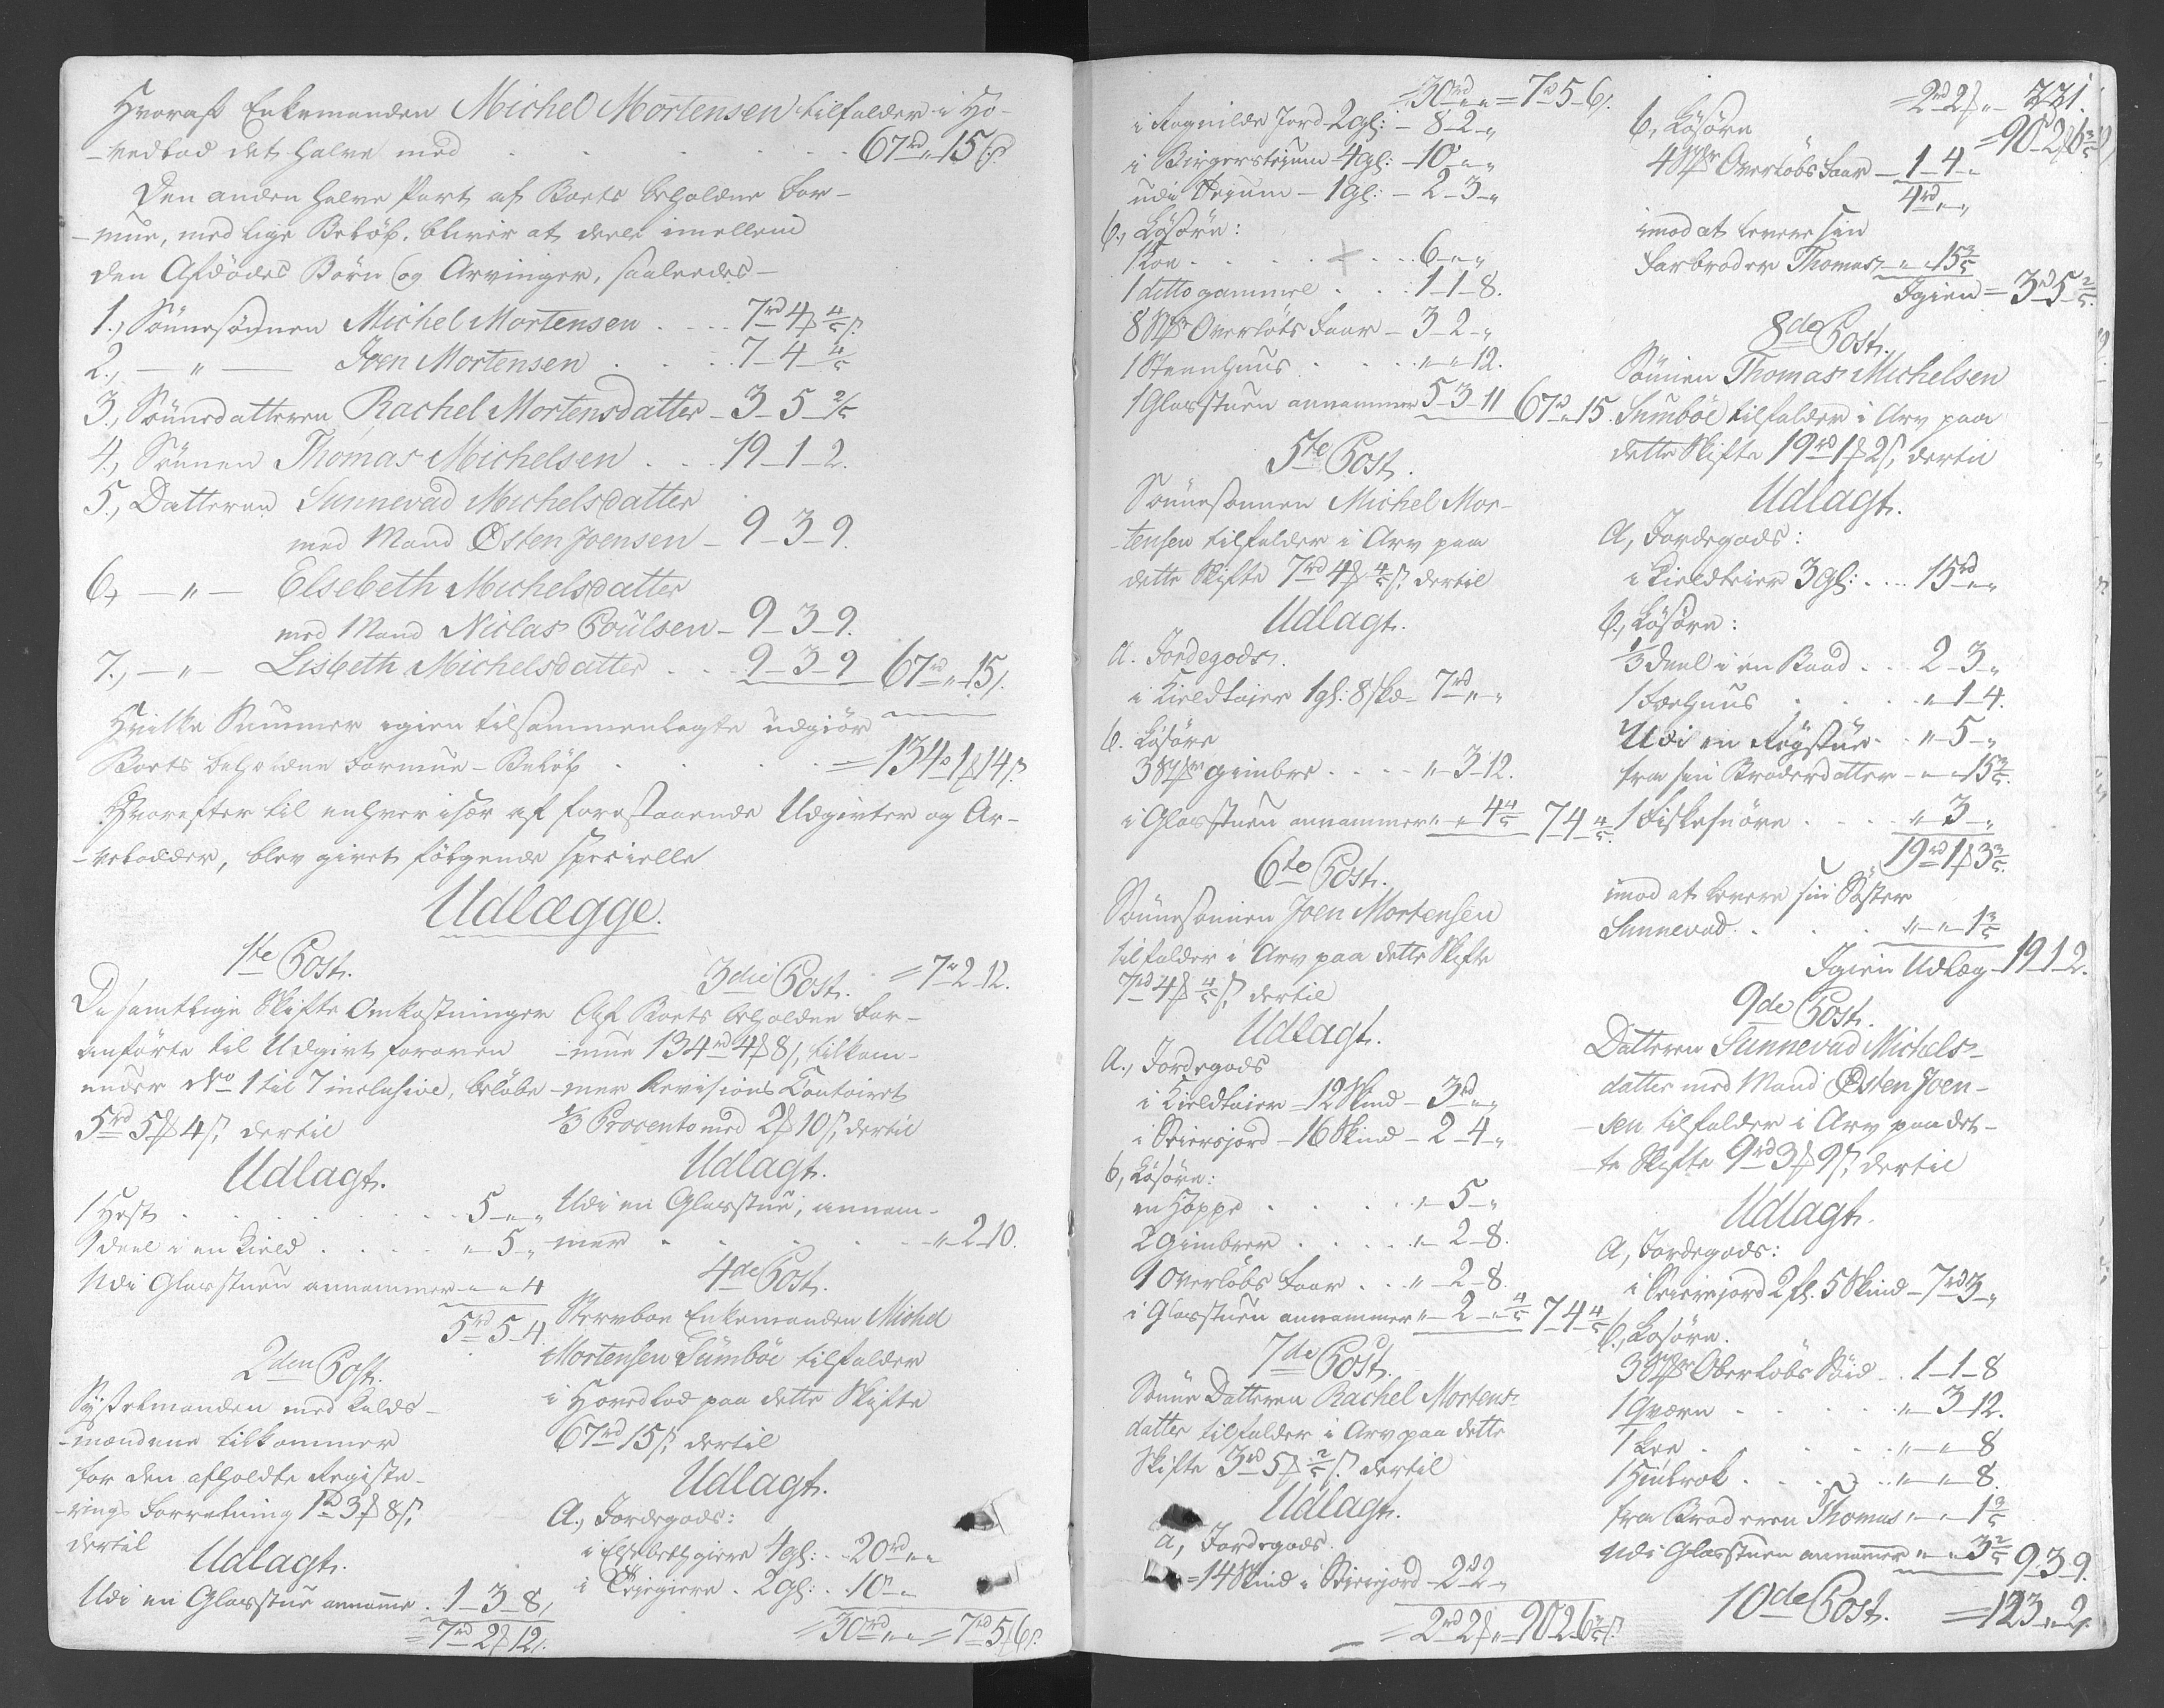 Hvoraf Enkemanden Michel Mortensen tilfalder i Ho-
-vedlod det halve med . . . . . 67rd „ 15 s.
Den anden halve Part af Boets beholdne For-
-mue, med lige Beløb, bliver at deele imellem
den Afdødes Børn og Arvinger, saaledes-
1., Sønnesønnen Michel Mortensen . . . 7rd 4 ₻ 4/5 s.
2., — „ — Joen Mortensen . . . 7-4-4/5
3., Sønnedatteren Rachel Mortensdatter - 3-5-2/5
4., Sønnen Thomas Michelsen . . . 19-1-2.
5., Datteren Sunnevad Michelsdatter
med Mand Østen Joensen - 9-3-9.
6., — „ — Elsebeth Michelsdatter
med Mand Niclas Poulsen - 9-3-9.
7., — „ — Lisbeth Michelsdatter . . 9-3-9 67rd „ 15 s.
Hvilke Summer igien tilsammenlagte udgiør
Boets beholdne Formue-Beløb . . . . = 134rd 1 ₻ 14 s.
Hvorefter til enhver især af forestaaende Udgivter og Ar-
-velodder, blev givet følgende specielle
Udlægge.
1te Post.
De samtlige Skifte Omkostninger
anførte til Udgivt foroven
under No 1 til 7 inclusive, beløbe
5rd 5 ₻ 4 s, dertil
Udlagt.
1 Hest . . . . . . 5 - „ - „
1 deel i en Kield . . . . „ - 5 - „
Udi Glasstuen annammer - „ - „ 4
5rd 5-4.
2den Post.
Sysselmanden med Kalds-
-mændene tilkommer
for den afholdte Registe-
-rings Forretning 1rd 3 ₻ 8 s,
dertil
Udlagt.
Udi en Glasstue annamme . 1-3-8,
= 7rd 2 ₻ 12 s.
3die Post. = 7rd 2-12.
Af Boets beholdne For-
-mue 134rd 4 ₻ 8 s, tilkom-
-mer Revisions Contoiret
1/3 Procento med 2 ₻ 10 s, dertil
Udlagt.
Udi en Glasstue, annam-
mer . . . . . . „ - 2-10.
4de Post.
Stervboe Enkemanden Michel
Mortensen Sumbøe tilfalder
i Hovedlod paa dette Skifte
67rd 15 s, dertil
Udlagt.
A., Jordegods:
i Elsebethgiera 4 gl: . . 20rd „ „
. 2 gl: . 10 - „ - „
= 30rd „ „ = 7rd 5 ₻ 6 s.
= 30rd „ „ = 7rd 5-6 s.
i Ragnilde Jord 2 gl: - 8-2-„
4 gl: - 10 - „ - „
- 1 gl: - 2-3-„
b., Løsøre:
1 Koe . . . . . 6 - „ - „
1 ditto gammel . . . 1-1-8.
8 Stk Overløbs Faar - 3-2-„
1 Steenhuus . . . . „ - „ 12.
1 Glasstuen annammer 5-3-11 67rd „ 15.
5te Post.
Sønnesønnen Michel Mor-
-tensen tilfalder i Arv paa
dette Skifte 7rd 4 ₻ 4/5 s, dertil
Udlagt.
a. Jordegods.
i Kieldtøier 1 gl: 8 skd - 7rd „ - „
b. Løsøre
3 Stkr gimbre . . . . „ - 3-12.
i Glasstuen annammer „ - „ 4 4/5 7 4 4/5.
6te Post.
Sønnesønnen Joen Mortensen
tilfalder i Arv paa dette Skifte
7rd 4 ₻ 4/5 s, dertil
Udlagt.
A., Jordegods
i Kieldtøier = 12 Skind - 3rd „ - „
16 Skind - 2-4-„
b, Løsøre:
en Hoppe . . . . . „ - 5 - „
2 Gimbrer . . . . „ - 2-8.
1 Overløbs Faar . . „ - 2-8.
i Glasstuen annammer „ - 2 - „ 4/5 7-4 4/5
7de Post.
Sønne Datteren Rachel Mortens-
datter tilfalder i Arv paa dette
Skifte 3rd 5 ₻ 2/5 s, dertil
Udlagt.
a, Jordegods.
= 14 Skind i 2rd 2-„
= 2rd 2 ₻ „ = 90-2-6 3/5 s.
= 2rd 2 ₻ „ - 221.
= 90-2 ₻ 6 3/5 s
b, Løsøre
4 Stkr Overløbs Faar - 1-4-„
4rd „ - „
imod at levere sin
Farbroder Thomas - „ - „ 15 3/5
Igien = 3rd 5 2/5.
8de Post.
Sønnen Thomas Michelsen
Sumbøe tilfalder i Arv paa
dette Skifte 19rd 1 ₻ 2 s, dertil
Udlagt.
A, Jordegods:
i Kieldtøier 3 gl: . . . 15rd „ - „
b., Løsøre:
1/3 deel i en Baad . . 2-3-„
1 Fæehuus . . . . „ - 1-4.
Udi en Røgstue . . „ - 5 - „
fra sin Broderdatter - „ - „ 15 3/5.
1 Fiskesnøre . . . . „ 3 - „
19rd 1 ₻ 3 3/5.
imod at levere sin Søster
Sunnevad . . . . . „ - „ - 1 3/5
Igien Udlæg 19-1-2.
9de Post.
Datteren Sunnevad Michels-
datter med Mand Østen Joen-
-sen tilfalder i Arv paa det-
-te Skifte 9rd 3 ₻ 9 s, dertil
Udlagt.
A, Jordegods:
2 gl. 5 Skind - 7rd 3 - „
b., Løsøre.
3 Stkr Overløbs . . 1-1-8
1 Qværn . . . . . „ - 3-12.
1 Lee . . . . . „ - „ - 8
1 . . . . . „ - „ - 8.
fra Broderen Thomas „ - „ - 1 3/5
Udi Glasstuen annammer „ - „ - 3 2/5 9-3-9.
10de Post. = 123 „ - 2 s.